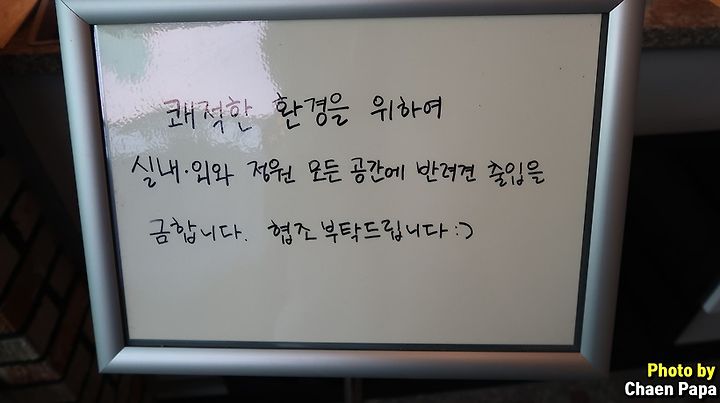 쾌적한 환경을 위하여
실내·외와 정원 모든 공간에 반려견 출입을
금합니다. 협조 부탁드립니다 :)
Photo by
Chaen Papa